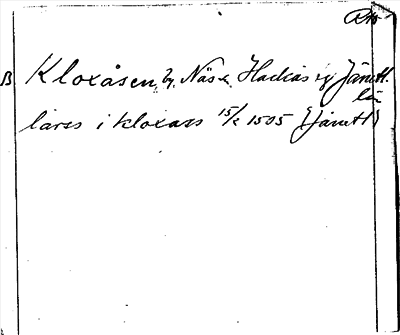 B Kloxåsen, by, Näs s. Hackås sg Jämtl.
län
larss i kloxass 15/2 1505 (Jämtl)